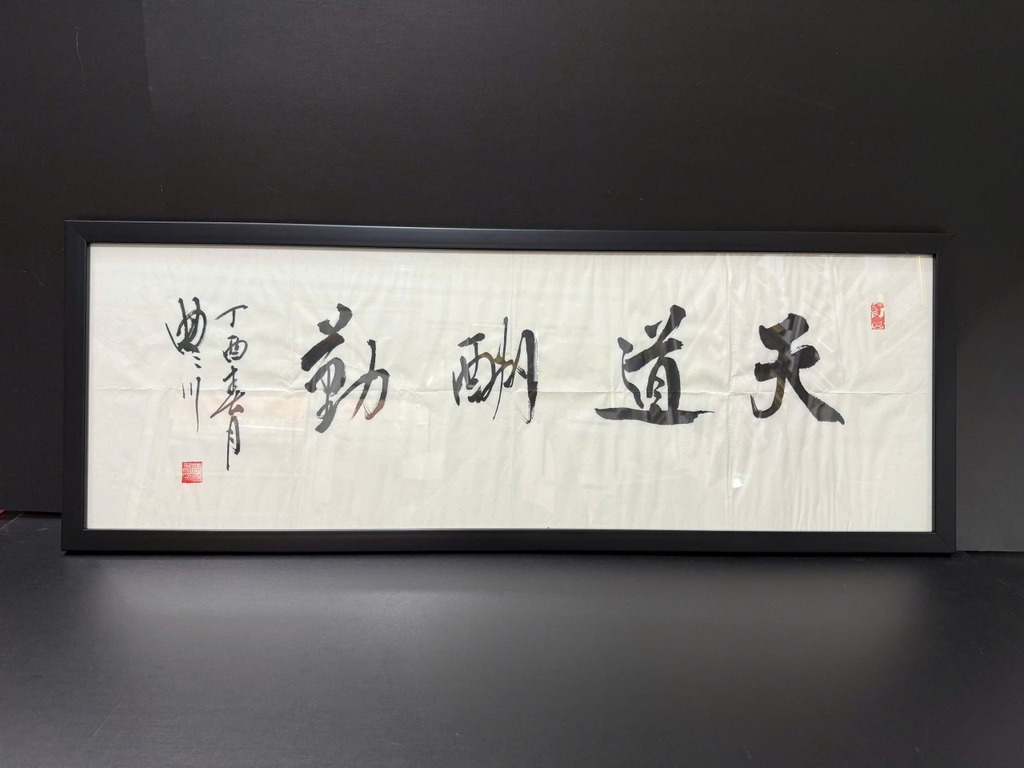 天道酬勤
丁酉春月